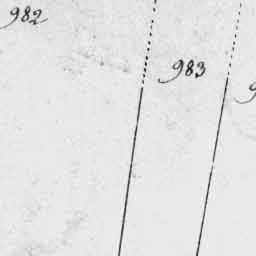 982
983